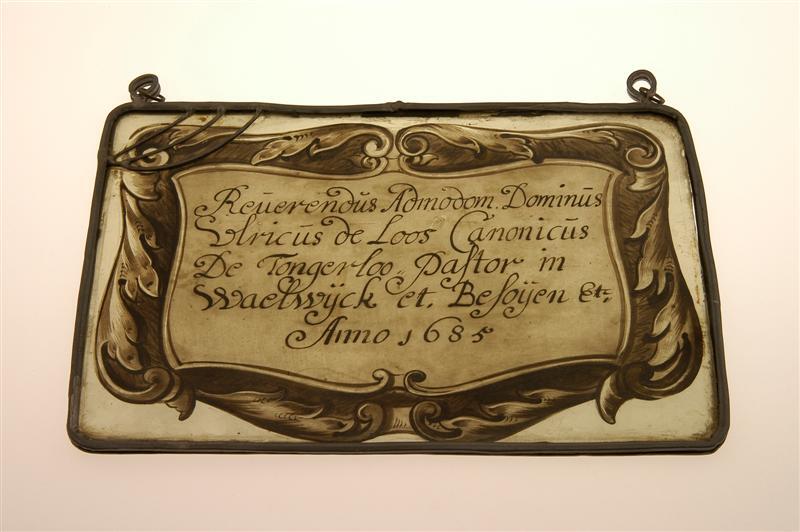 Reūerendūs Admodom. Dominūs
Vlricūs de Loos Canonicūs
De Tongerloo„ Paſtor in
Waelwÿck et. Beſoÿen Etc
Anno 1685